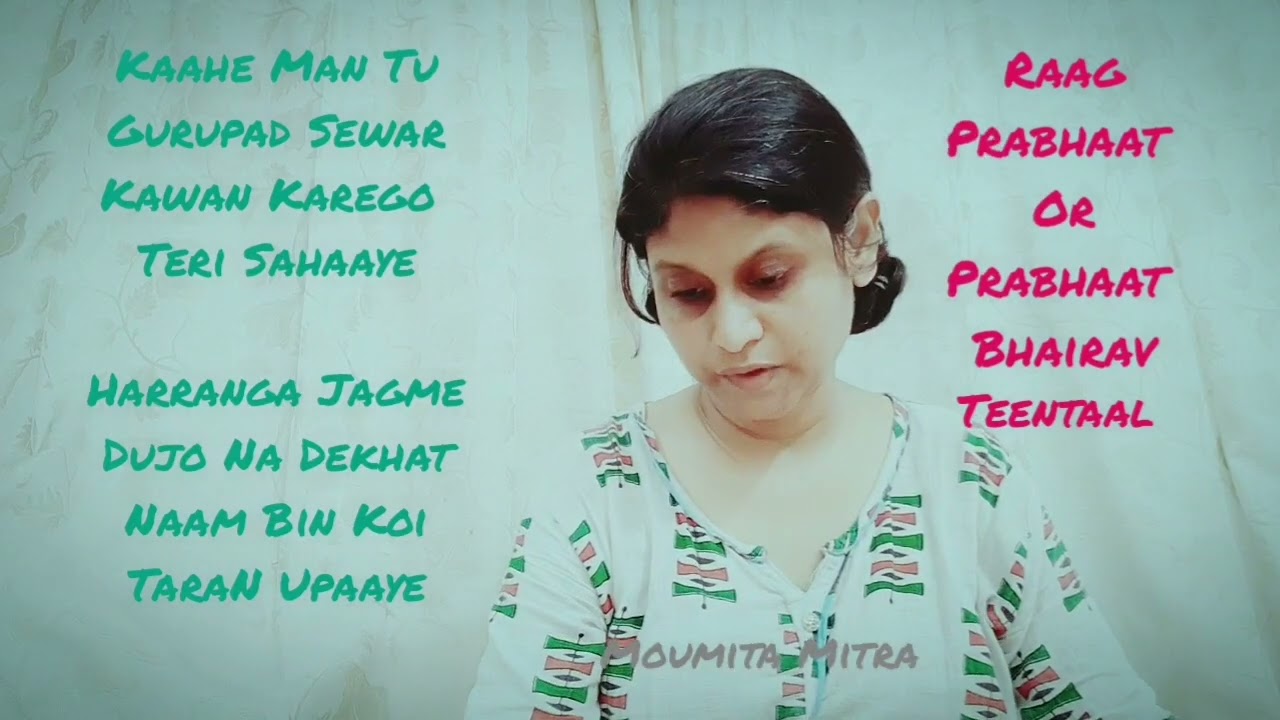 Kaahe Man Tu
Gurupad Sewar
Kawan Karego
Teri Sahaaye
Harranga Jagme
Dujo Na Dekhat
Naam Bin Koi
TaraN Upaaye
Raag
Prabhaat
Or
Prabhaat
Bhairav
Teentaal
Moumita Mitra